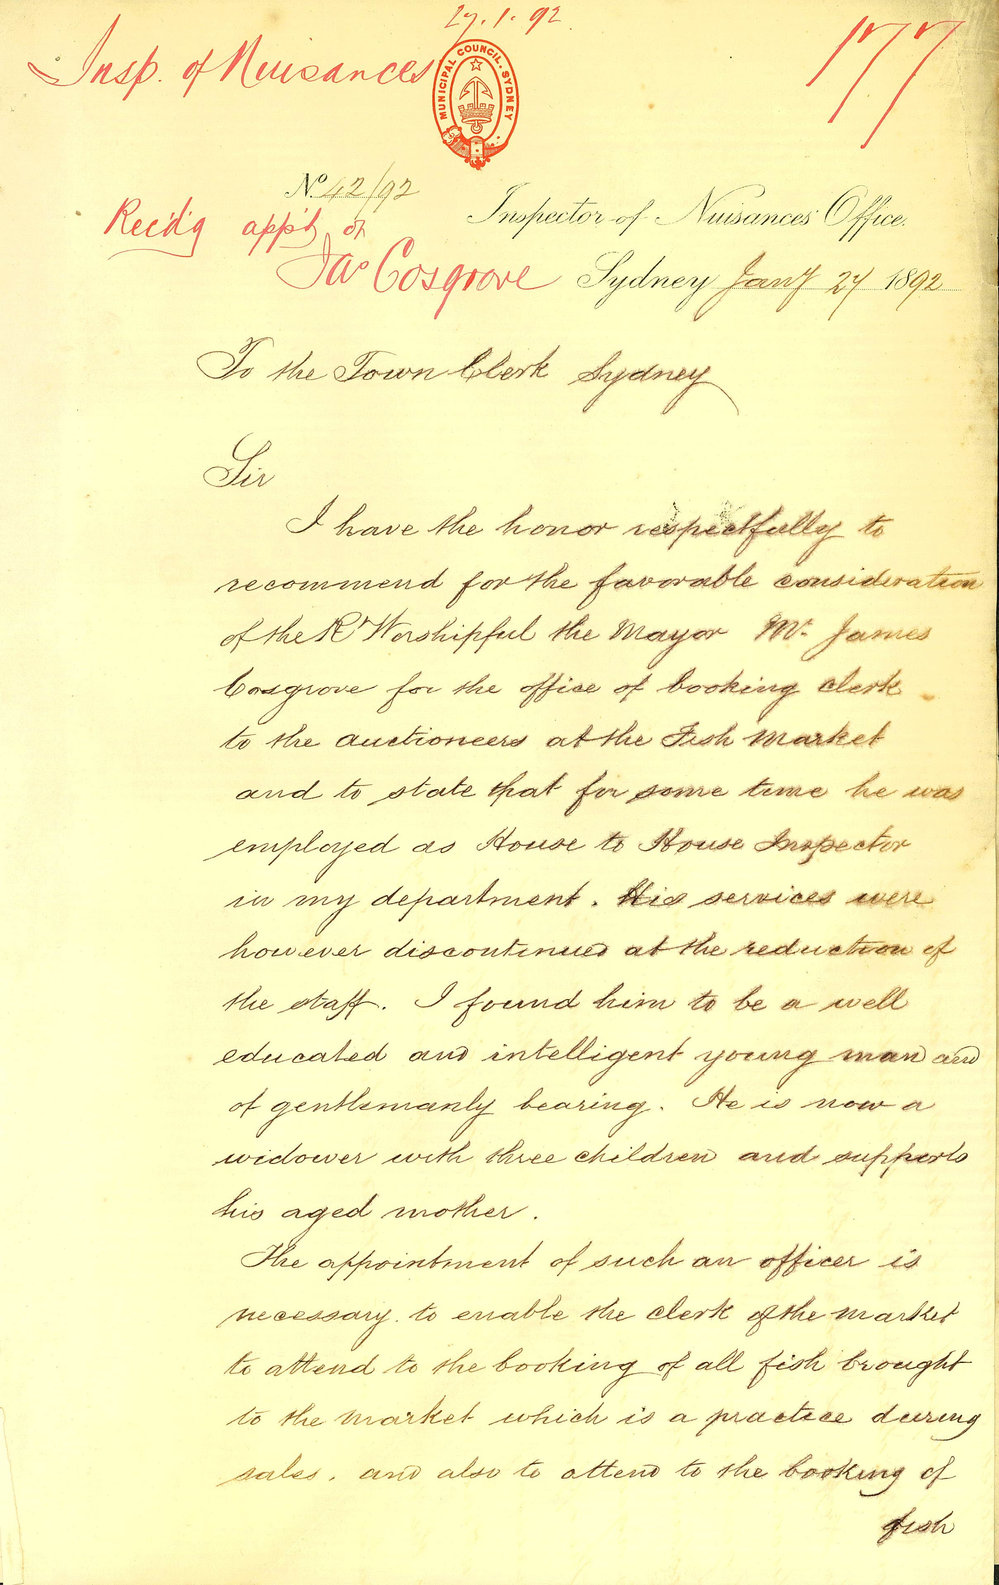 27.1.92
Insp. of Nuisances
177
MUNICIPAL COUNCIL. SYDNEY
No. 42/92
Inspector of Nuisances Office.
Rec'd'g app't of
Jas Cosgrove
Sydney Jany 27 1892
To the Town Clerk Sydney
Sir
I have the honor respectfully to
recommend for the favorable consideration
of the Rt Worshipful the Mayor Mr. James
Cosgrove for the office of booking clerk
to the auctioneers at the Fish Market
and to state that for some time he was
employed as House to House Inspector
in my department. His services were
however discontinued at the reduction of
the staff. I found him to be a well
educated and intelligent young man and
of gentlemanly bearing. He is now a
widower with three children and supports
his aged mother.
The appointment of such an officer is
necessary to enable the clerk of the market
to attend to the booking of all fish brought
to the market which is a practice during
sales. and also to attend to the booking of
fish